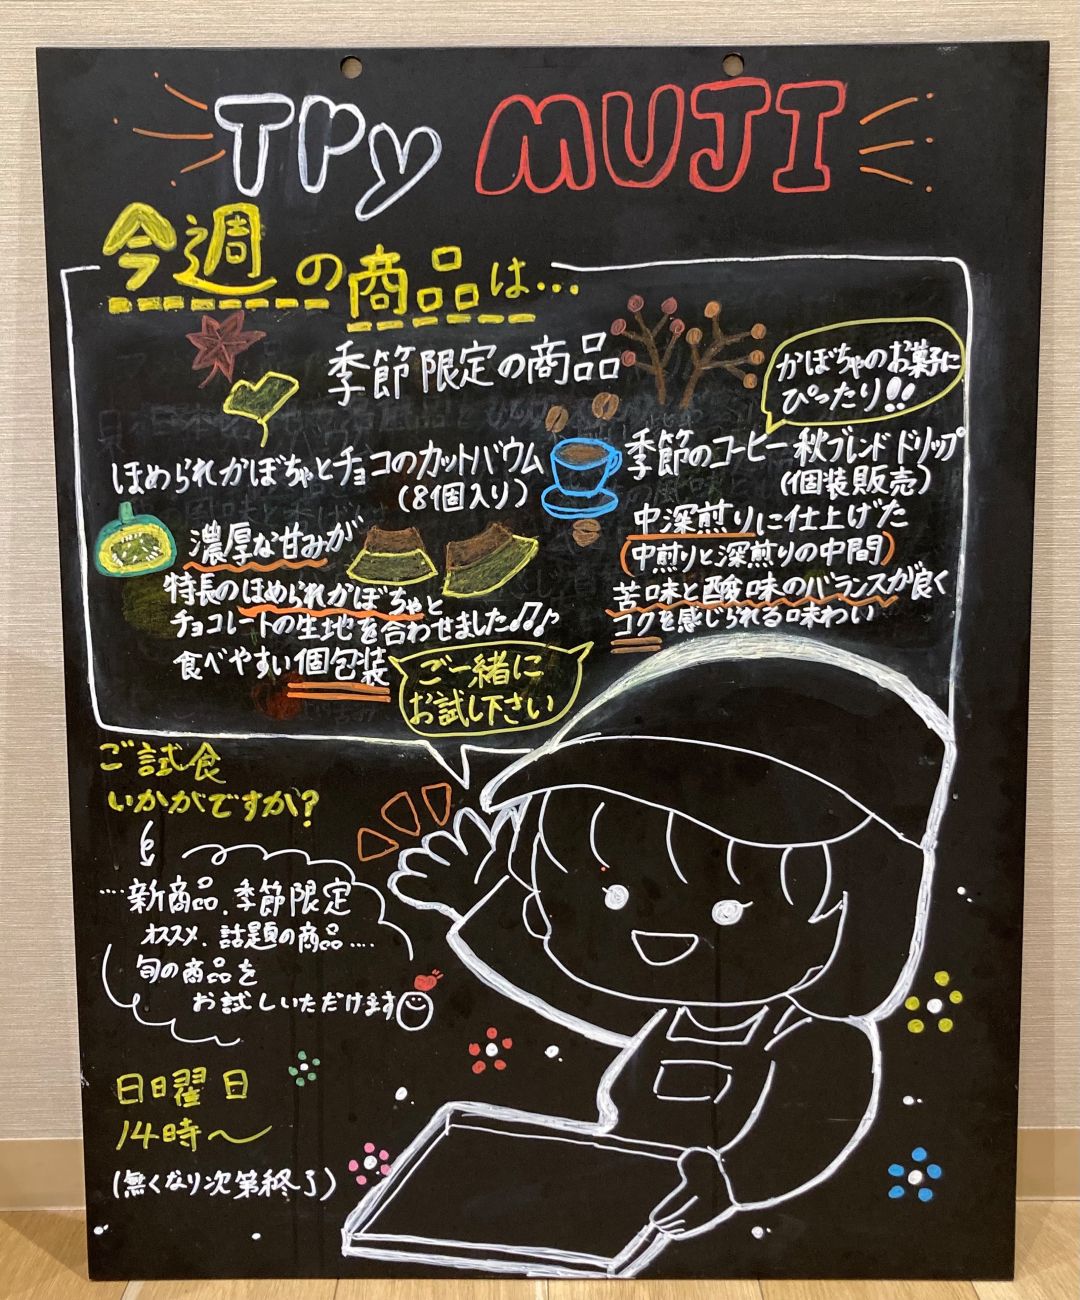 Try MUJI
今週の商品は...
季節限定の商品
ほめられかぼちゃとチョコのカットバウム
(8個入り)
濃厚な甘みが
特長のほめられかぼちゃと
チョコレートの生地を合わせました♫♪
食べやすい個包装
かぼちゃのお菓子に
ぴったり!!
季節のコーヒー 秋ブレンド ドリップ
(個装販売)
中深煎りに仕上げた
(中煎りと深煎りの中間)
苦味と酸味のバランスが良く
コクを感じられる味わい
ご一緒に
お試し下さい
ご試食
いかがですか?
....新商品.季節限定
オススメ.話題の商品....
旬の商品を
お試しいただけます
日曜日
14時〜
(無くなり次第終了)